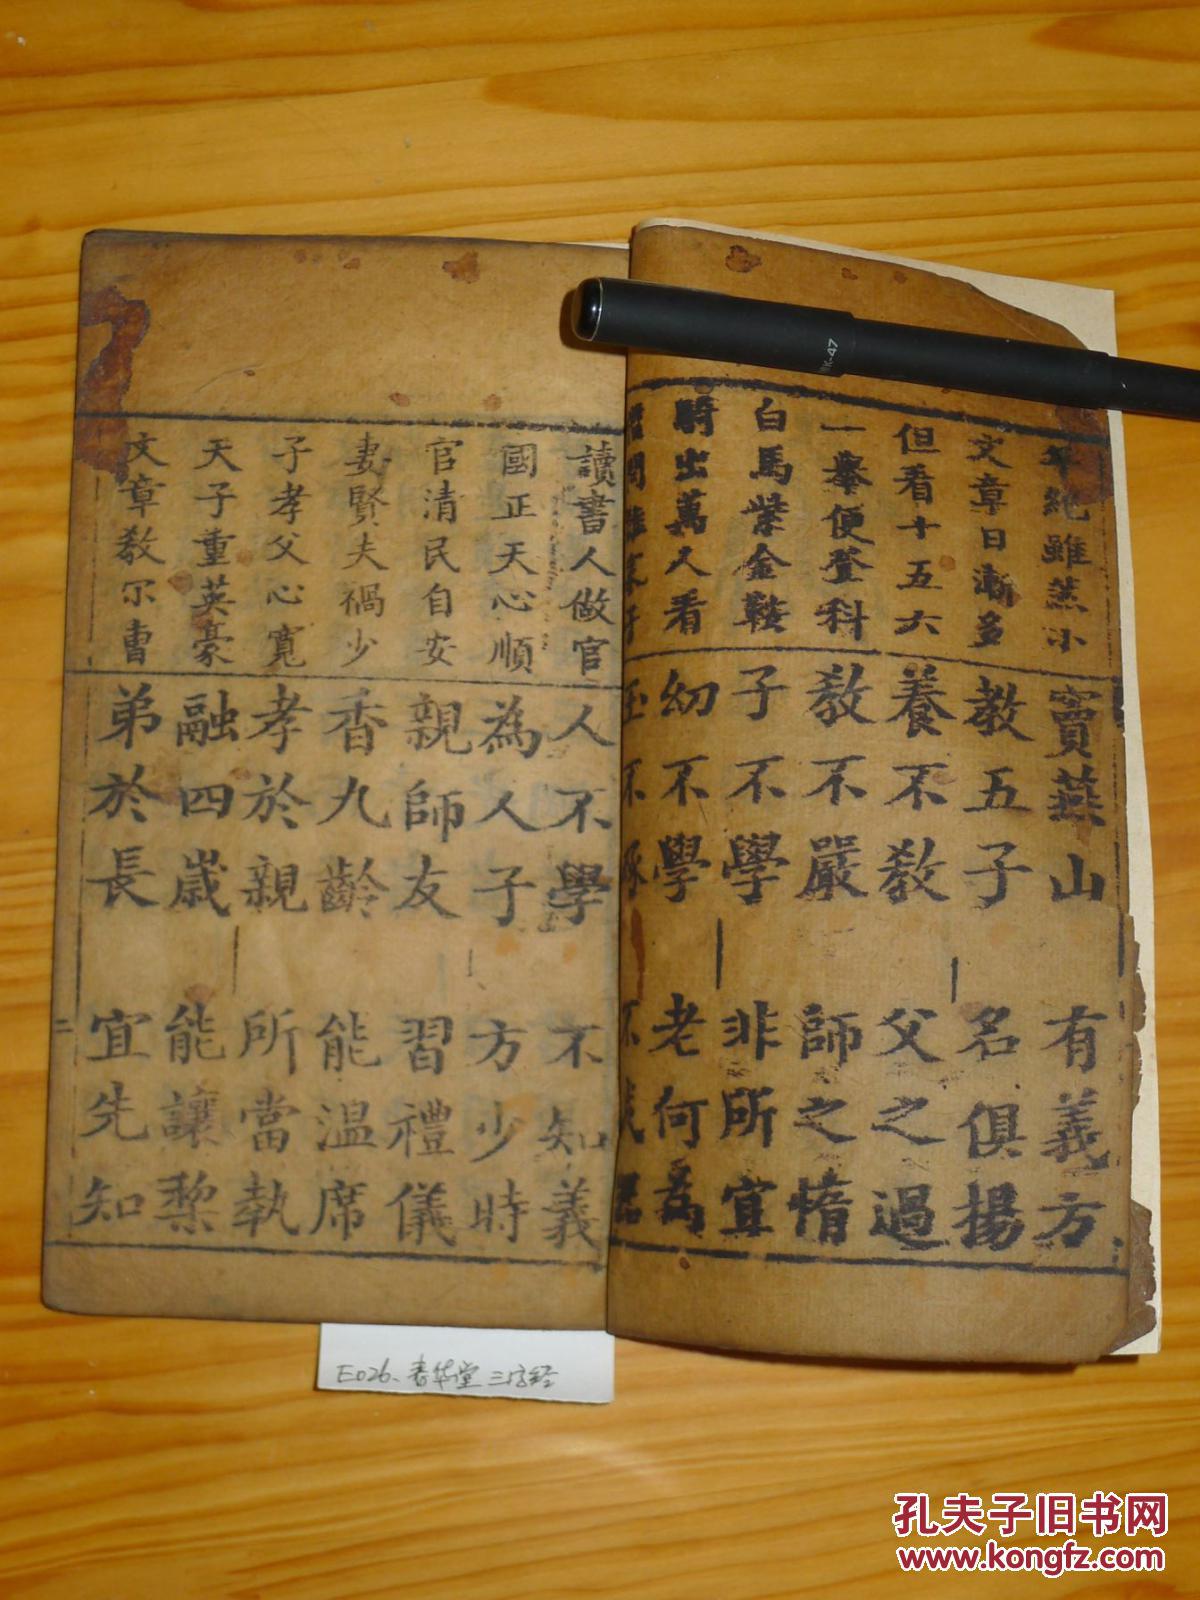 年紀雖然小
文章日漸多
但看十五六
一舉便登科
白馬紫金鞍
騎出萬人看
竇燕山 有義方
教五子 名俱揚
養不教 父之過
教不嚴 師之惰
子不學 非所宜
幼不學 老何為
不 不
讀書人做官
國正天心順
官清民自安
妻賢夫禍少
子孝父心寬
天子重英豪
文章教尔曹
人不學 不知義
為人子 方少時
親師友 習禮儀
香九齡 能溫席
孝於親 所當執
融四歲 能讓梨
弟於長 宜先知
二
E026、春华堂 三字经
K-47
孔夫子旧书网
www.kongfz.com